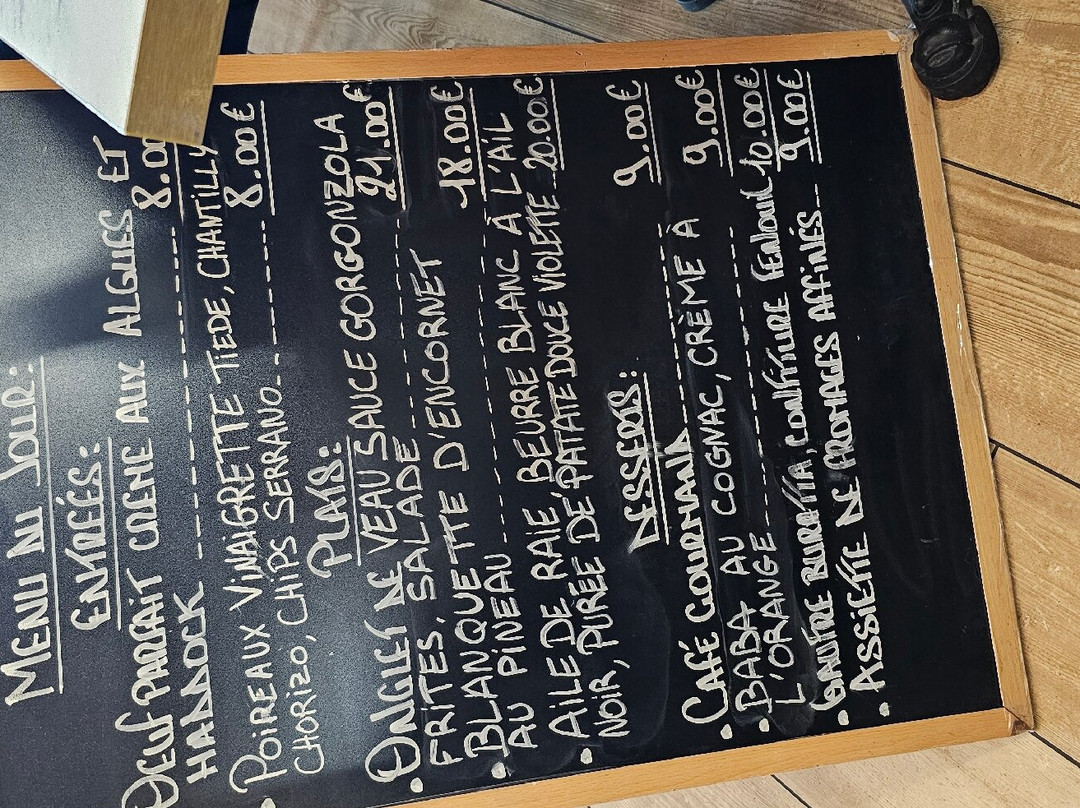 MENU DU JOUR:
ENTRÉES:
OEUF PARFAIT CRÈME AUX ALGUES ET
HADDOCK ---------- 8.00
• POIREAUX VINAIGRETTE TIEDE, CHANTILLY
CHORIZO, CHIPS SERRANO.------- 8.00€
PLATS:
• ONGLET DE VEAU SAUCE GORGONZOLA
FRITES, SALADE ---------- 21.00€
• BLANQUETTE D'ENCORNET
AU PINEAU ---------- 18.00€
• AILE DE RAIE, BEURRE BLANC À L'AIL
NOIR, PURÉE DE PATATE DOUCE VIOLETTE 20.00€
DESSERTS:
• CAFÉ GOURMAND ---------- 9.00€
• BABA AU COGNAC, CRÈME À
L'ORANGE ---------- 9.00€
• GAUFRE BURATTA, CONFITURE FENOUIL 10.00€
• ASSIETTE DE FROMAGES AFFINÉS -- 9.00€